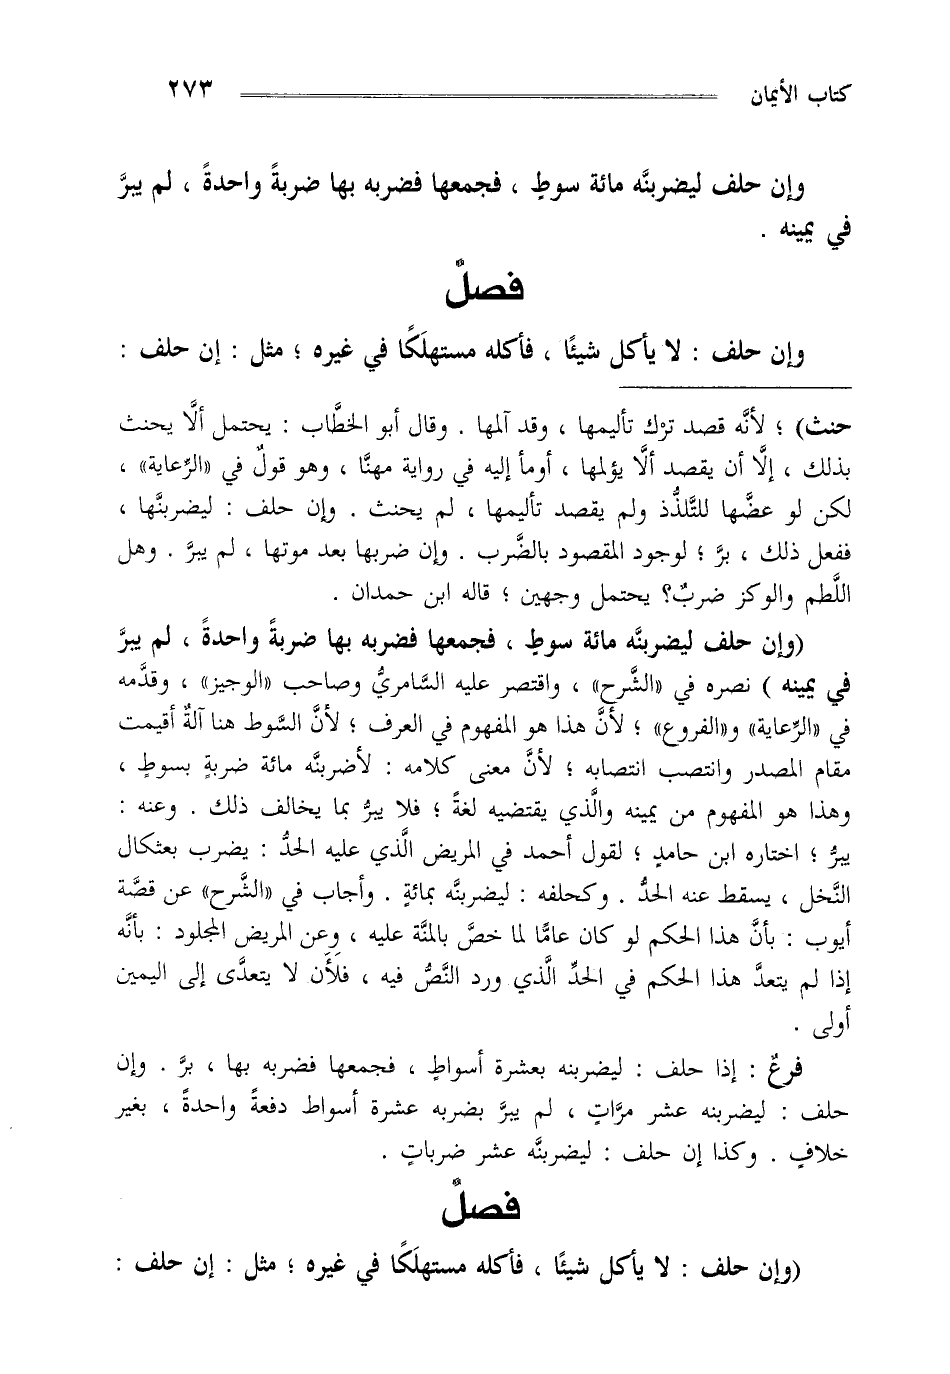 كتاب الأيمان ٢٧٣
وإن حلف ليضربنَّه مائة سوطٍ ، فجمعها فضربه بها ضربةً واحدةً ، لم يبرَّ
في يمينه .
فصلٌ
وإن حلف : لا يأكل شيئًا ، فأكله مستهلَكًا في غيره ؛ مثل : إن حلف :
حنث) ؛ لأنَّه قصد ترْك تأليمها ، وقد آلمها . وقال أبو الخطَّاب : يحتمل ألَّا يحنث
بذلك ، إلَّا أن يقصد ألَّا يؤلمها ، أومأ إليه في رواية مهنَّا ، وهو قولٌ في «الرِّعاية» ،
لكن لو عضَّها للتَّلذُّذ ولم يقصد تأليمها ، لم يحنث . وإن حلف : ليضربنَّها ،
ففعل ذلك ، برَّ ؛ لوجود المقصود بالضَّرب . وإن ضربها بعد موتها ، لم يبرَّ . وهل
اللَّطم والوكز ضربٌ؟ يحتمل وجهين ؛ قاله ابن حمدان .
(وإن حلف ليضربنَّه مائة سوطٍ ، فجمعها فضربه بها ضربةً واحدةً ، لم يبرَّ
في يمينه ) نصره في «الشَّرح» ، واقتصر عليه السَّامريُّ وصاحب «الوجيز» ، وقدَّمه
في «الرِّعاية» و«الفروع» ؛ لأنَّ هذا هو المفهوم في العرف ؛ لأنَّ السَّوط هنا آلةٌ أقيمت
مقام المصدر وانتصب انتصابه ؛ لأنَّ معنى كلامه : لأضربنَّه مائة ضربةٍ بسوطٍ ،
وهذا هو المفهوم من يمينه والَّذي يقتضيه لغةً ؛ فلا يبرُّ بما يخالف ذلك . وعنه :
يبرُّ ؛ اختاره ابن حامدٍ ؛ لقول أحمد في المريض الَّذي عليه الحدُّ : يضرب بعثكال
النَّخل ، يسقط عنه الحدُّ . وكحلفه : ليضربنَّه بمائةٍ . وأجاب في «الشَّرح» عن قصَّة
أيوب : بأنَّ هذا الحكم لو كان عامًّا لما خصَّ بالمنَّة عليه ، وعن المريض المجلود : بأنَّه
إذا لم يتعدَّ هذا الحكم في الحدِّ الَّذي ورد النَّصُّ فيه ، فلَأَن لا يتعدَّى إلى اليمين
أولى .
فرعٌ : إذا حلف : ليضربنه بعشرة أسواطٍ ، فجمعها فضربه بها ، برَّ . وإن
حلف : ليضربنه عشر مرَّاتٍ ، لم يبرَّ بضربه عشرة أسواط دفعةً واحدةً ، بغير
خلافٍ . وكذا إن حلف : ليضربنَّه عشر ضرباتٍ .
فصلٌ
(وإن حلف : لا يأكل شيئًا ، فأكله مستهلَكًا في غيره ؛ مثل : إن حلف :